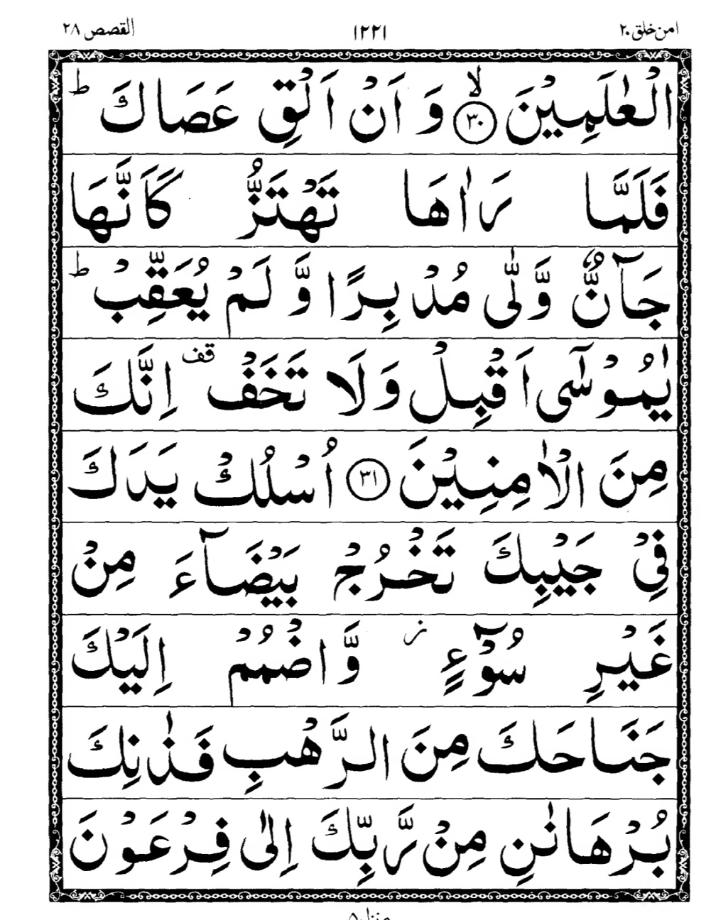 امن خلق ٢٠ ١٢٢١ القصص ٢٨
الْعٰلَمِيْنَ ۙ‏﴿٣٠﴾ وَ اَنْ اَلْقِ عَصَاكَ ؕ
فَلَمَّا رَاٰهَا تَهْتَزُّ كَاَنَّهَا
جَآنٌّ وَّلّٰى مُدْبِرًا وَّ لَمْ يُعَقِّبْ ؕ
يٰمُوْسٰٓى اَقْبِلْ وَ لَا تَخَفْ قف اِنَّكَ
مِنَ الْاٰمِنِيْنَ ﴿٣١﴾ اُسْلُكْ يَدَكَ
فِيْ جَيْبِكَ تَخْرُجْ بَيْضَآءَ مِنْ
غَيْرِ سُوْٓءٍ ز وَّ اضْمُمْ اِلَيْكَ
جَنَاحَكَ مِنَ الرَّهْبِ فَذٰنِكَ
بُرْهَانٰنِ مِنْ رَّبِّكَ اِلٰى فِرْعَوْنَ
منزل ٥